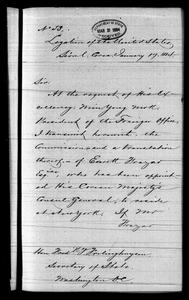 No. 53.
Legation of the United States,
Seoul, Corea, January 17, 1884.
Sir
At the request of His Ex-
cellency Min Yong Mok,
President of the Foreign Office,
I transmit herewith the
Commission and a translation
thereof of Everett Frazar
Esqre, who has been appointed
His Corean Majesty's
Consul General, to reside
at New York. If Mr
Frazar
Hon. Fredk. T. Frelinghuysen
Secretary of State
Washington D.C.